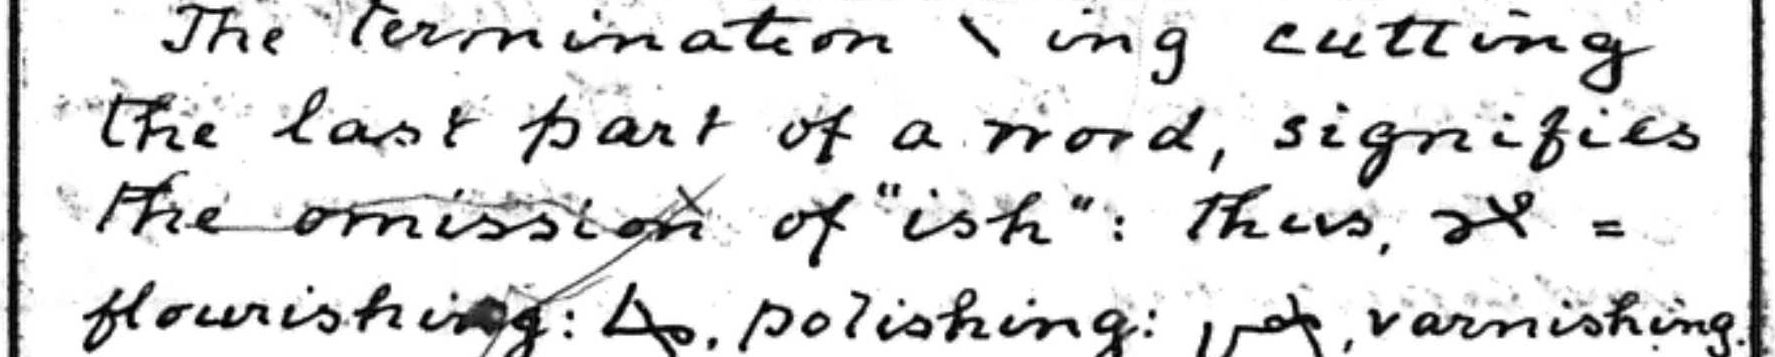 The termination \ ing cutting
the last part of a word, signifies
the omission of "ish": thus, =
flourishing: , polishing: , varnishing.